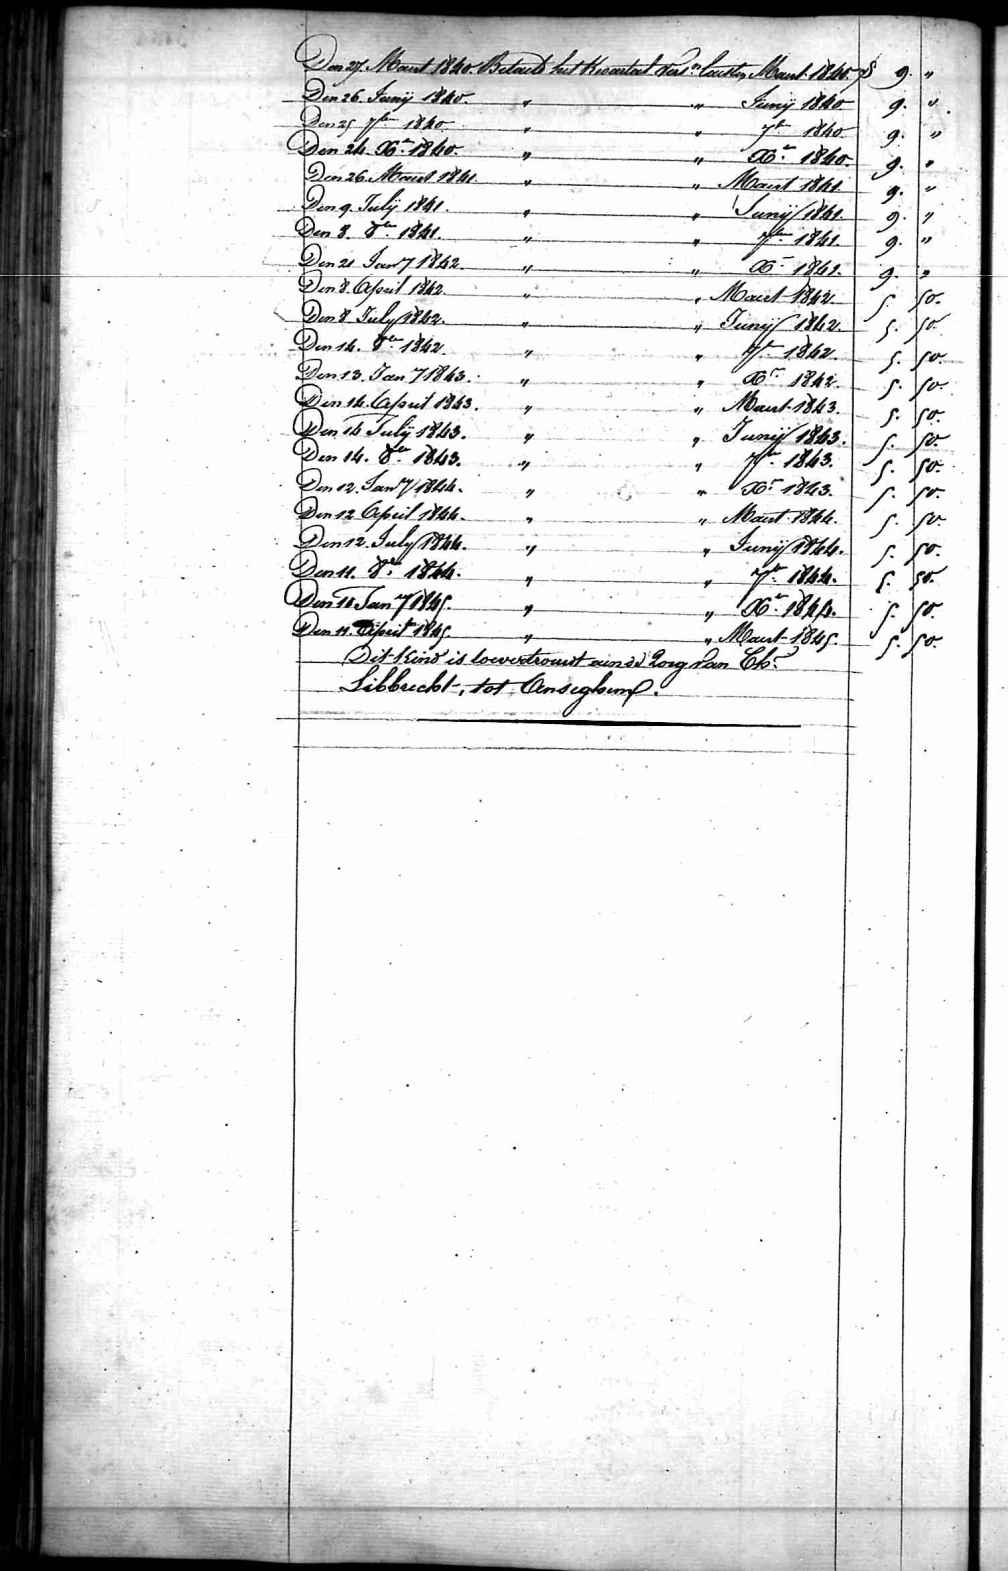 Den 27 Maart 1840. Betaeld het Kwartal vers.n laesten Maart 1840. 9. "
Den 26. Junij 1840. " " Junij 1840 9. "
Den 25 7bre 1840. " " 7bre 1840 9. "
Den 24. Xbre 1840. " " Xbre 1840. 9. "
Den 26. Maart 1841. " " Maart 1841 9. "
Den 9. Julij 1841. " " Junij 1841. 9. "
Den 8. 8bre 1841. " " 7bre 1841 9. "
Den 21 Jan.y 1842. " " Xbre 1841. 9. "
Den 8. April 1842. " " Maart 1842. 5. 50.
Den 8 July 1842. " " Junij 1842. 5. 50.
Den 14. 8bre 1842. " " 7bre 1842. 5. 50.
Den 13. Jan.y 1843. " " Xbre 1842. 5. 50.
Den 14. April 1843. " " Maart 1843. 5. 50.
Den 14 Julij 1843. " " Junij 1843. 5. 50.
Den 14. 8bre 1843. " " 7bre 1843. 5. 50.
Den 12. Jan.y 1844. " " Xbre 1843. 5. 50.
Den 12 April 1844. " " Maart 1844. 5. 50.
Den 12. July 1844. " " Junij 1844. 5. 50.
Den 11. 8bre 1844. " " 7bre 1844. 5. 50.
Den 10 Jan.y 1845. " " Xbre 1844. 5. 50.
Den 11. April 1845. " " Maart 1845. 5. 50.
Dit Kind is toevertrouwt aen de Zorg van Ch.s
Libbrecht, tot Anseghem.